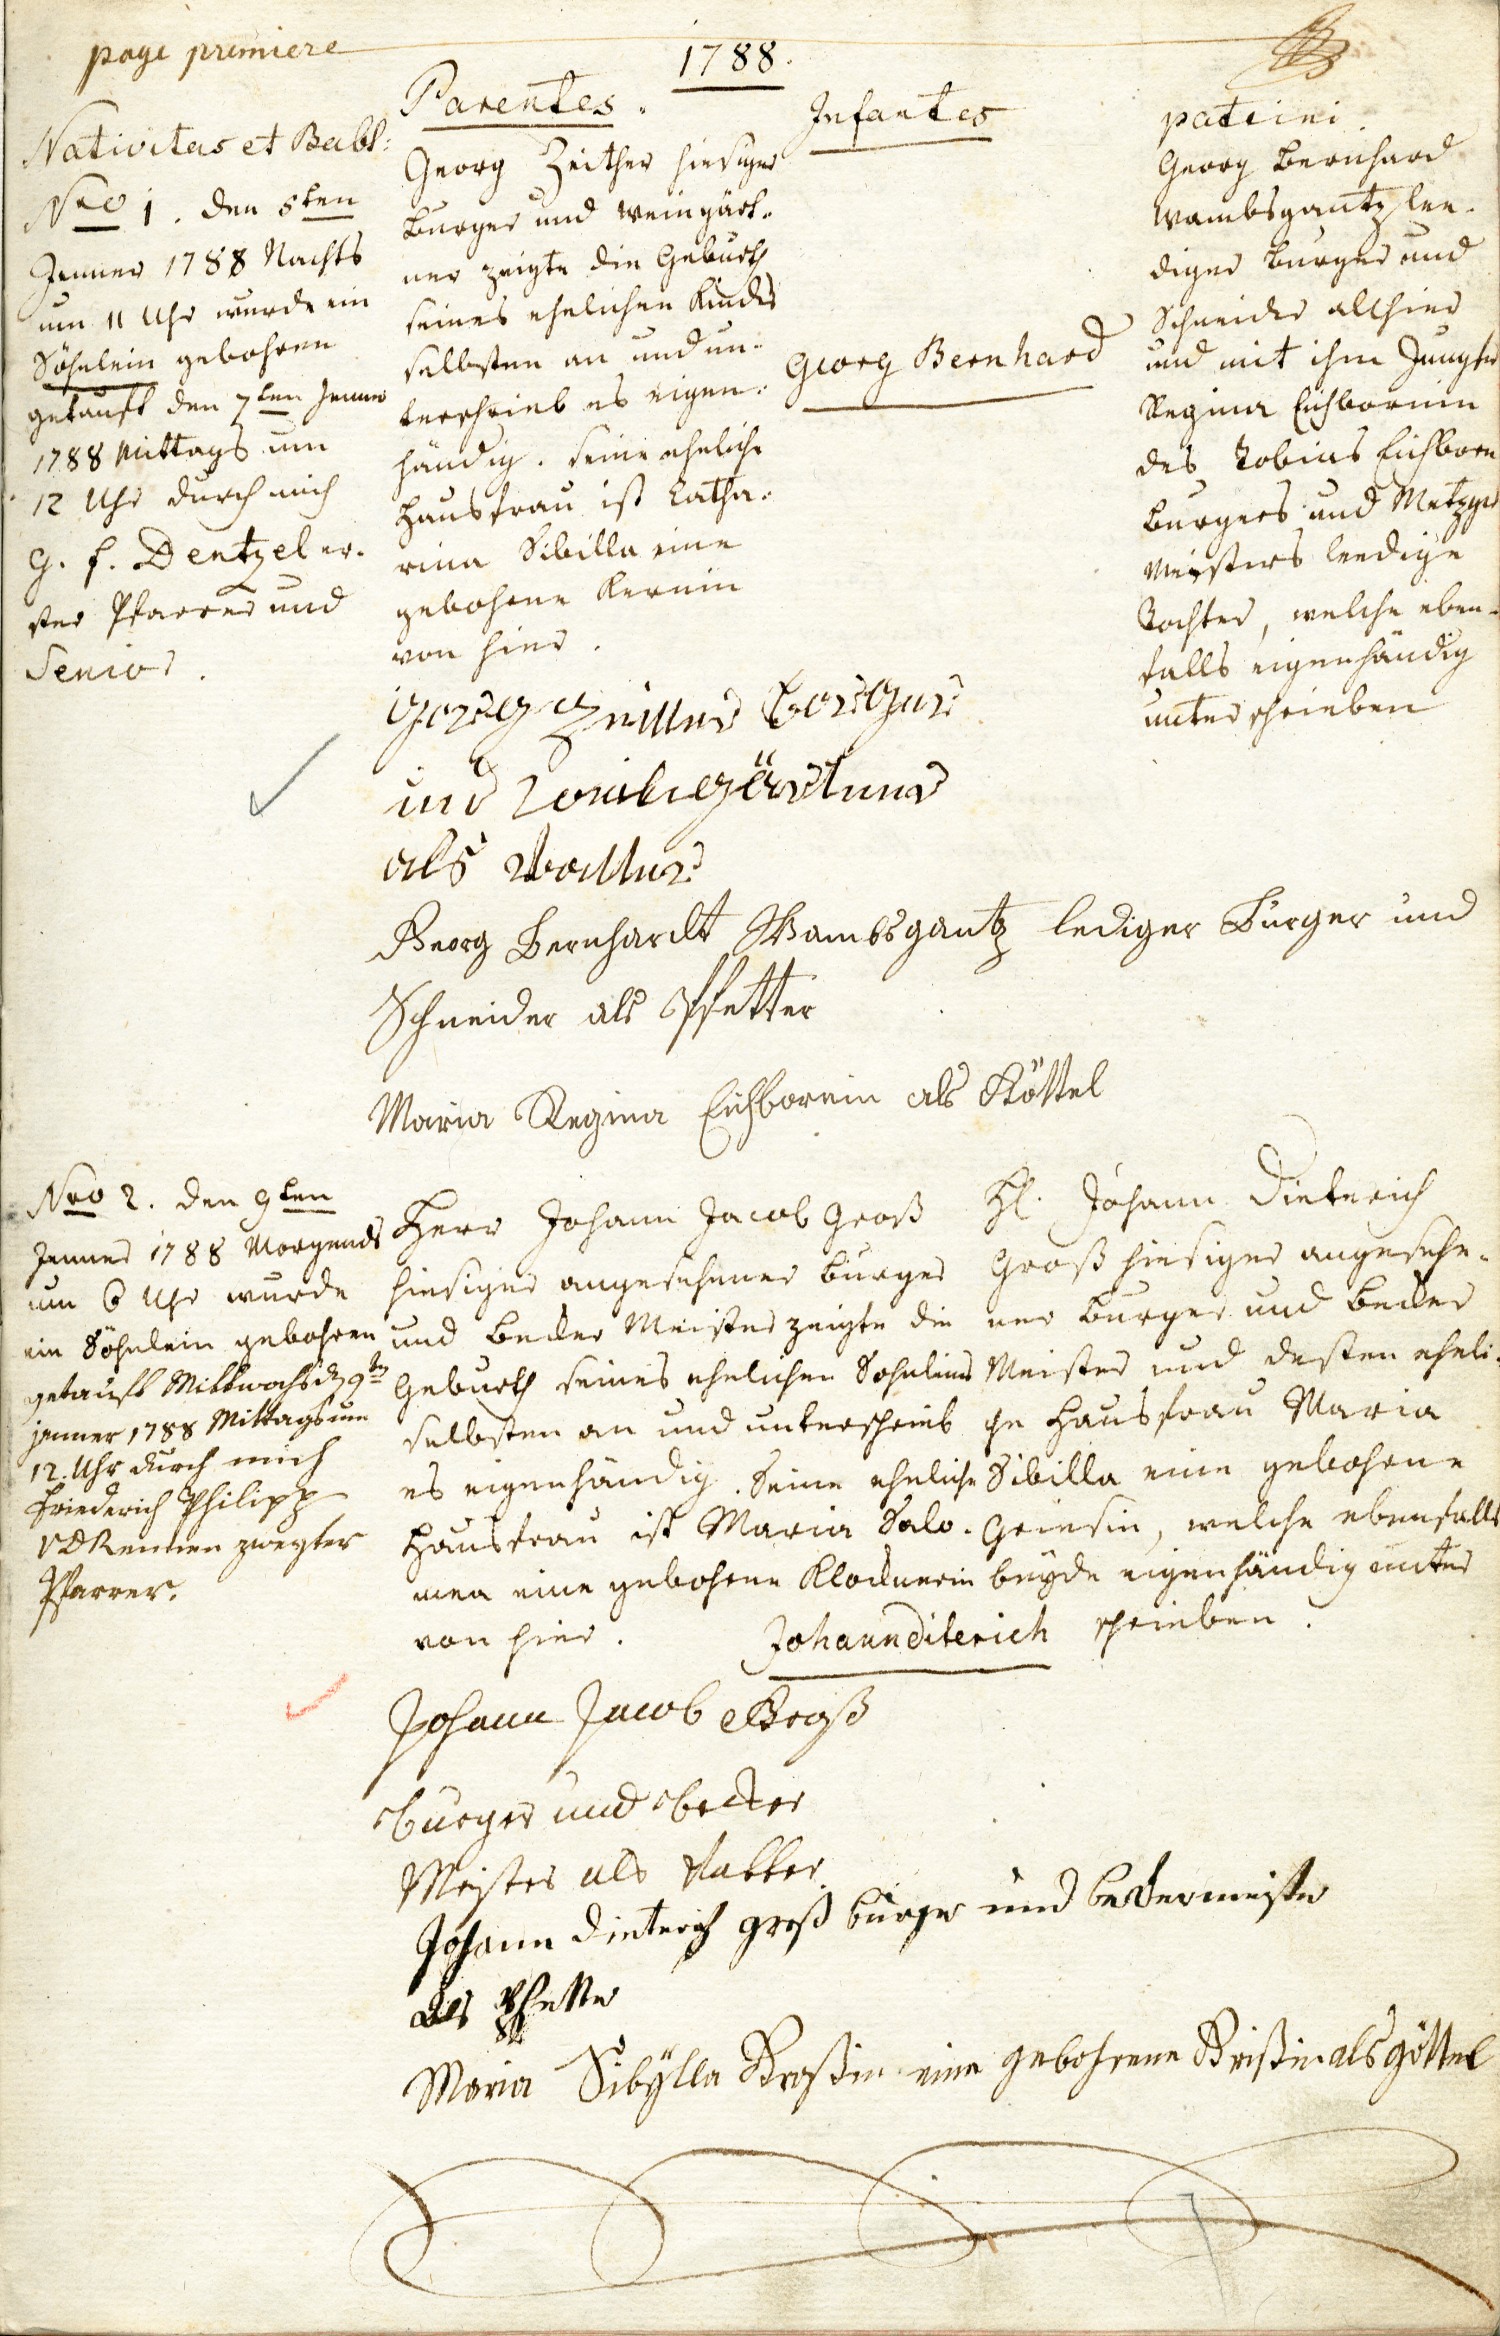 page premiere
1788.
Nativitas et Babt:
Nro 1. den 5ten
Jenner 1788 Nachts
um 11 Uhr wurde ein
Söhnlein gebohren
getauft den 7ten Jenner
1788 Mittags um
12 Uhr durch mich
G. F. Dentzel er-
ster Pfarrer und
Senior.
Parentes.
Georg Zeither hiesiger
Burger und Weingärt-
ner zeigte die Geburth
seines ehelichen Kindes
selbsten an und un-
terschrieb es eigen-
händig. seine eheliche
Hausfrau ist Catha-
rina Sibilla eine
gebohrne Kernin
von hier.
Infantes
Georg Bernhard
patrini
Georg Bernhard
Wambsgantz lee-
diger Burger und
Schneider allhier
und mit ihm Jungfer
Regina Eichbornin
des Tobias Eichborn
Burgers und Metzger
Meisters leedige
Tochter, welche eben-
falls eigenhändig
unterschrieben
Georg Zeitter Borger
und Weingärtner
als Vatter
Georg Bernhardt Wambsgantz lediger Burger und
Schneider als Pfetter
Maria Regina Eichbornin als Göttel
Nro 2. den 9ten
Jenner 1788 Morgends
um 6 Uhr wurde
ein Söhnlein gebohren
getauft Mittwochs d 9ten
jenner 1788 Mittags um
12. Uhr durch mich
Friederich Philipp
Rennen zweyter
Pfarrer.
Herr Johann Jacob Groß
hiesiger angesehener Burger
und Becker Meister zeigte die
Geburth seines ehelichen Sohnleins
selbsten an und unterschrieb
es eigenhändig. Seine eheliche
Hausfrau ist Maria Salo-
mea eine gebohrne Klocknerin
von hier.
Johann diterich
H. Johann Dieterich
Groß hiesiger angesehe-
ner Burger und Becker
Meister und desten eheli-
che Hausfrau Maria
Sibilla eine gebohrne
Griesin, welche ebenfalls
beyde eigenhändig unter
schrieben.
Johann Jacob Groß
burger und becker
Meister als Vatter
Johann Dieterich groß burger und beckermeister
als Pfetter
Maria Sibÿlla Großin eine gebohrene Grißin als göttel